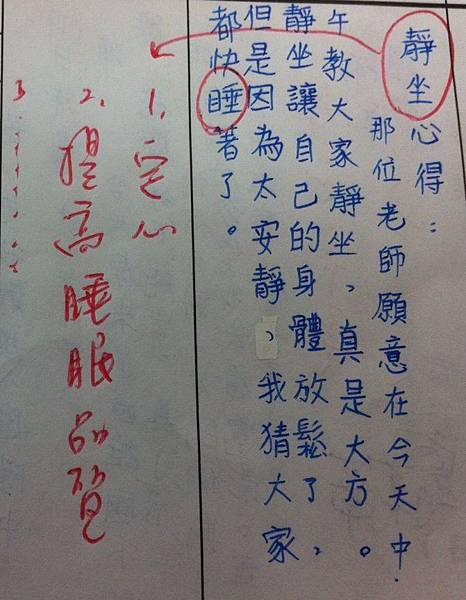 靜坐心得：
那位老師願意在今天中
午教大家靜坐，真是大方。
靜坐讓自己的身體放鬆了，
但是因為太安靜、我猜大家
都快睡著了。
1. 定心
2. 提高睡眠品質
3.